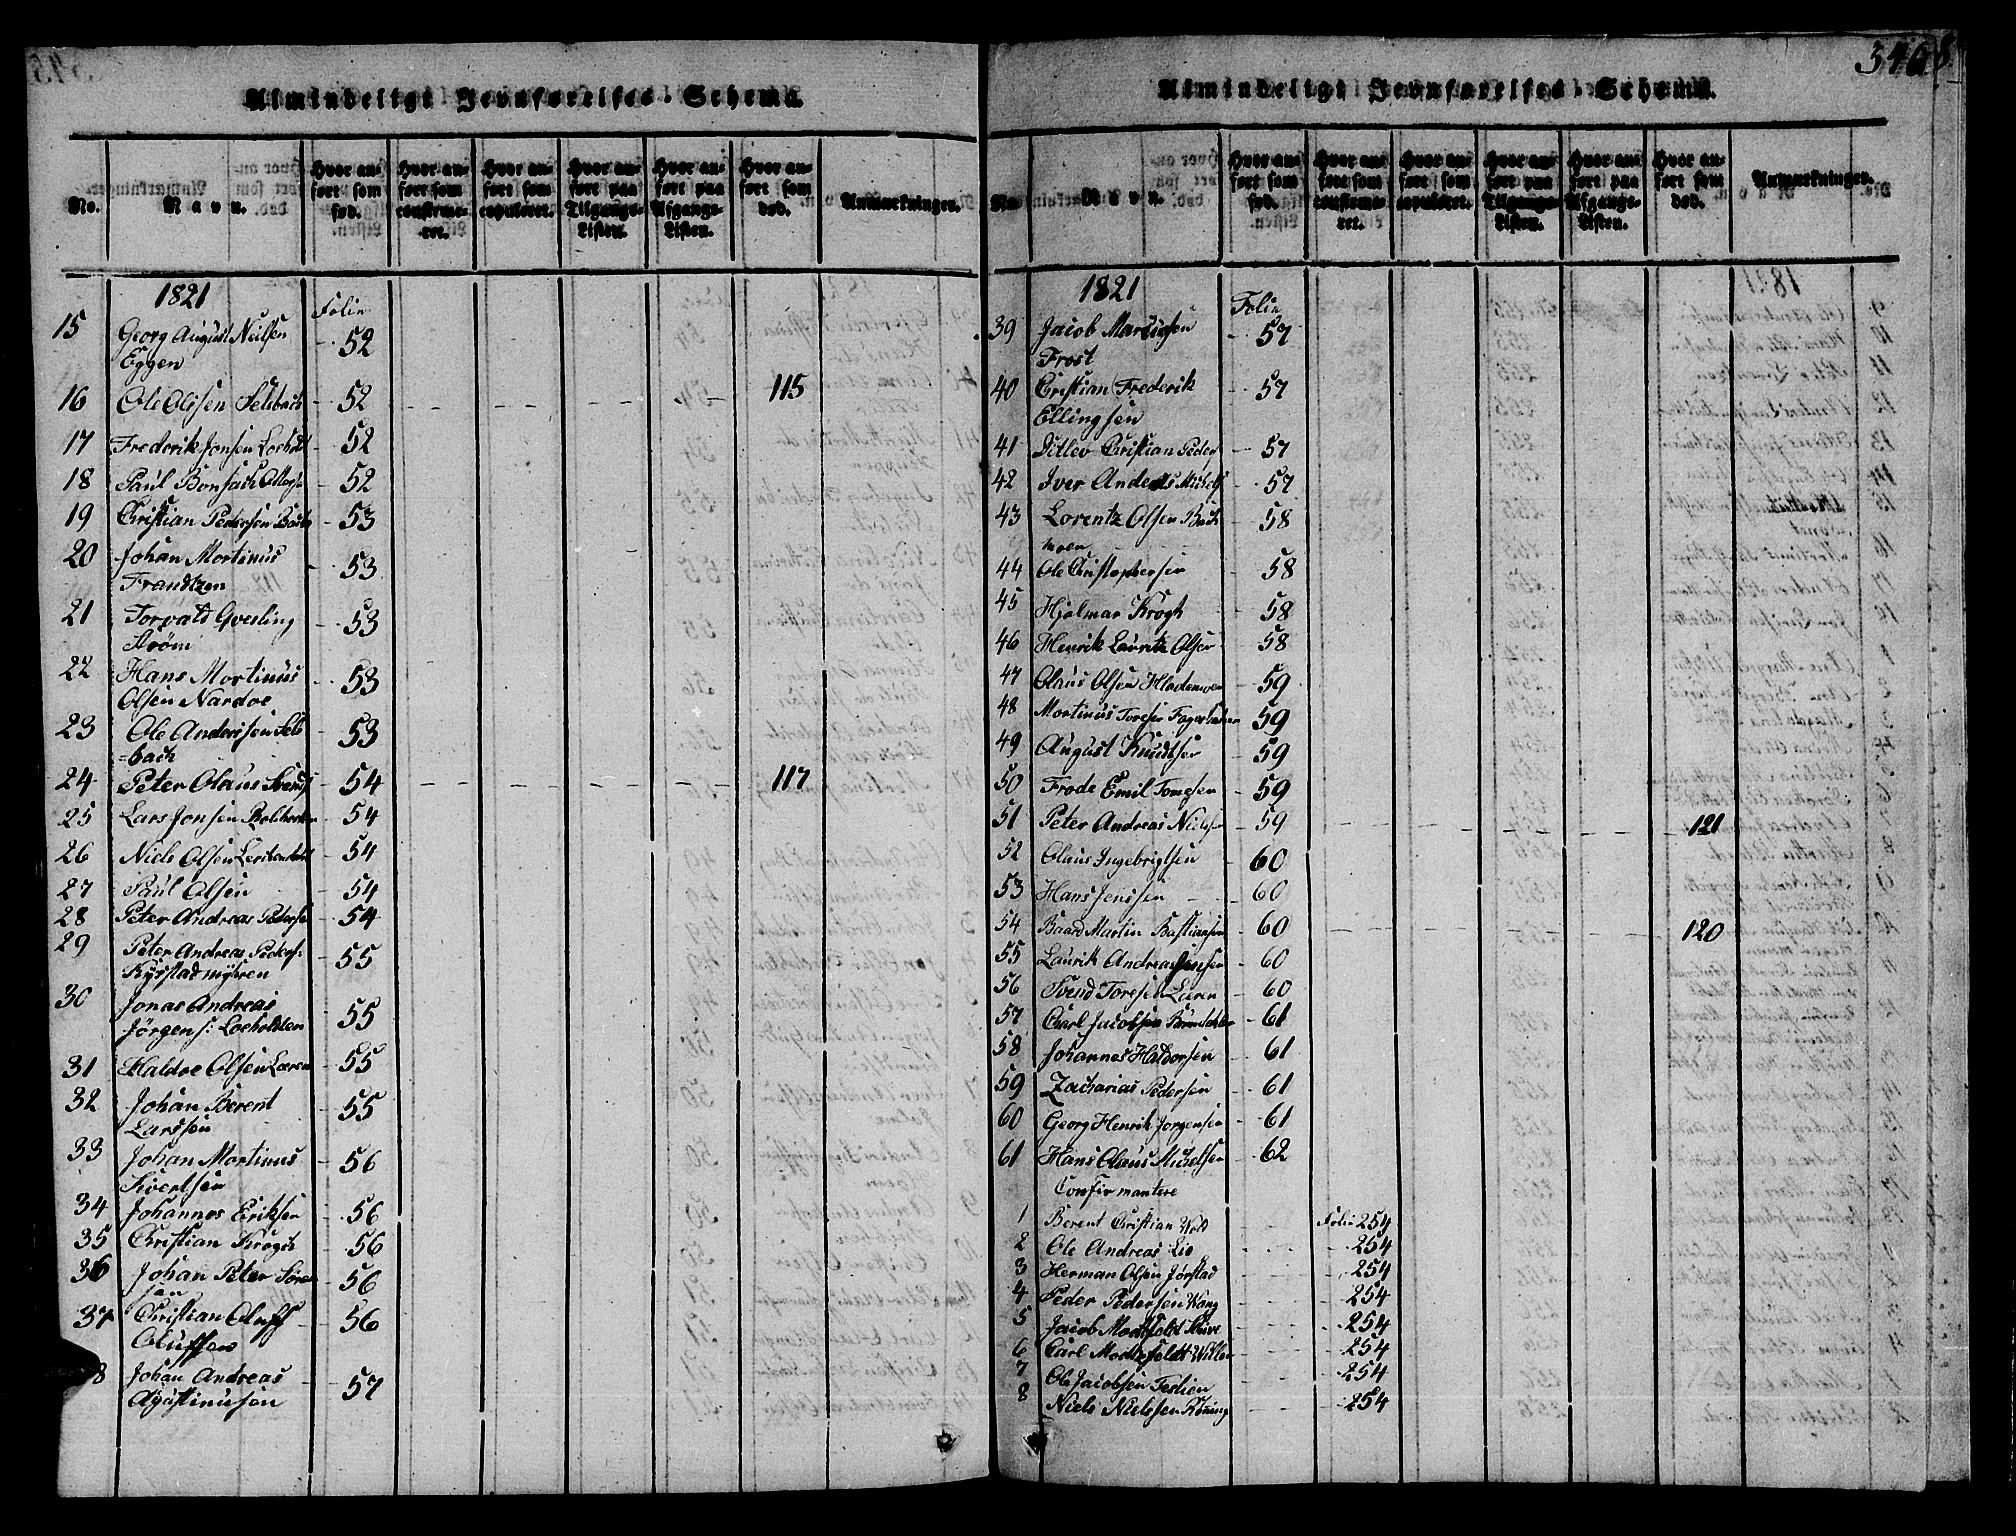 Almindeligt Jevnførelses-Schema.
No.
Navn.
Hvor anført som fød.
Hvor anført som confirmeret.
Hvor anført som copuleret.
Hvor anført paa Tilgangs-Listen.
Hvor anført paa Afgangs-Listen.
Hvor anført som død.
Anmærkninger.
1821 Folio
15 Georg August Neilsen Eggen 52
16 Ole Olsen Selsbach 52 115
17 Frederik Jonsen 52
18 Paul 52
19 Christian Pedersen 53
20 Johan Mortinus Frandtzen 53
21 Torvald Qvesling Strøm 53
22 Hans Mortinus Olsen Nardoe 53
23 Ole Andersen Sels=bach 53
24 Peter Olaus 54 117
25 Lars Jonsen 54
26 Niels Olsen 54
27 Paul Olsen 54
28 Peter Andreas Pedersen 54
29 Peter Andreas Peders: Rystadmyhren 55
30 Jonas Andreas Jörgens: Loeholdten 55
31 Haldoe Olsen Leeren 55
32 Johan Berent Larssen 55
33 Johan Mortinus Sivertsen 56
34 Johannes Eriksen 56
35 Christian Krogh 56
36 Johan Peter Sørensen 56
37 Christian Oluff Oluffsen 56
8 Johan Andreas Agustinusen 57
346
Almindeligt Jevnførelses-Schema.
No.
Navn.
Hvor anført som fød.
Hvor anført som confirmeret.
Hvor anført som copuleret.
Hvor anført paa Tilgangs-Listen.
Hvor anført paa Afgangs-Listen.
Hvor anført som død.
Anmærkninger.
1821 Folio
39 Jacob Frost 57
40 Cristian Frederik Ellingsen 57
41 Ditlev Christian Peder 57
42 Iver Anders Michels 57
43 Lorentz Olsen Bachmoen 58
44 Ole Christophersen 58
45 Hjelmar Krogh 58
46 Henrik Lauritz Olsen 58
47 Olaus Olsen Hlademoen 59
48 Mortinus Toresen 59
49 August Knudtsen 59
50 Frode Emil Tonesen 59
51 Peter Andreas Nielsen 59 121
52 Olaus Ingebrigtsen 60
53 Hans Jenssen 60
54 Baard Martin Bastiansen 60 120
55 Laurik Andreas Jensen 60
56 Svend Toresen Leeren 60
57 Carl Jacobsen 61
58 Johannes Haldorsen 61
59 Zacharias Pedersen 61
60 Georg Henrik Jorgensen 61
61 Hans Olaus Michelsen 62
Confirmantere
1 Berent Christian Wold Folio 254
2 Ole Andreas Lio 254
3 Herman Olsen Jørstad 254
4 Peder Pedersen Wang 254
5 Jacob Motzfeldt 254
6 Carl Motzfeldt 254
7 Ole Jacobsen 254
8 Niels Nielssen Röning 254